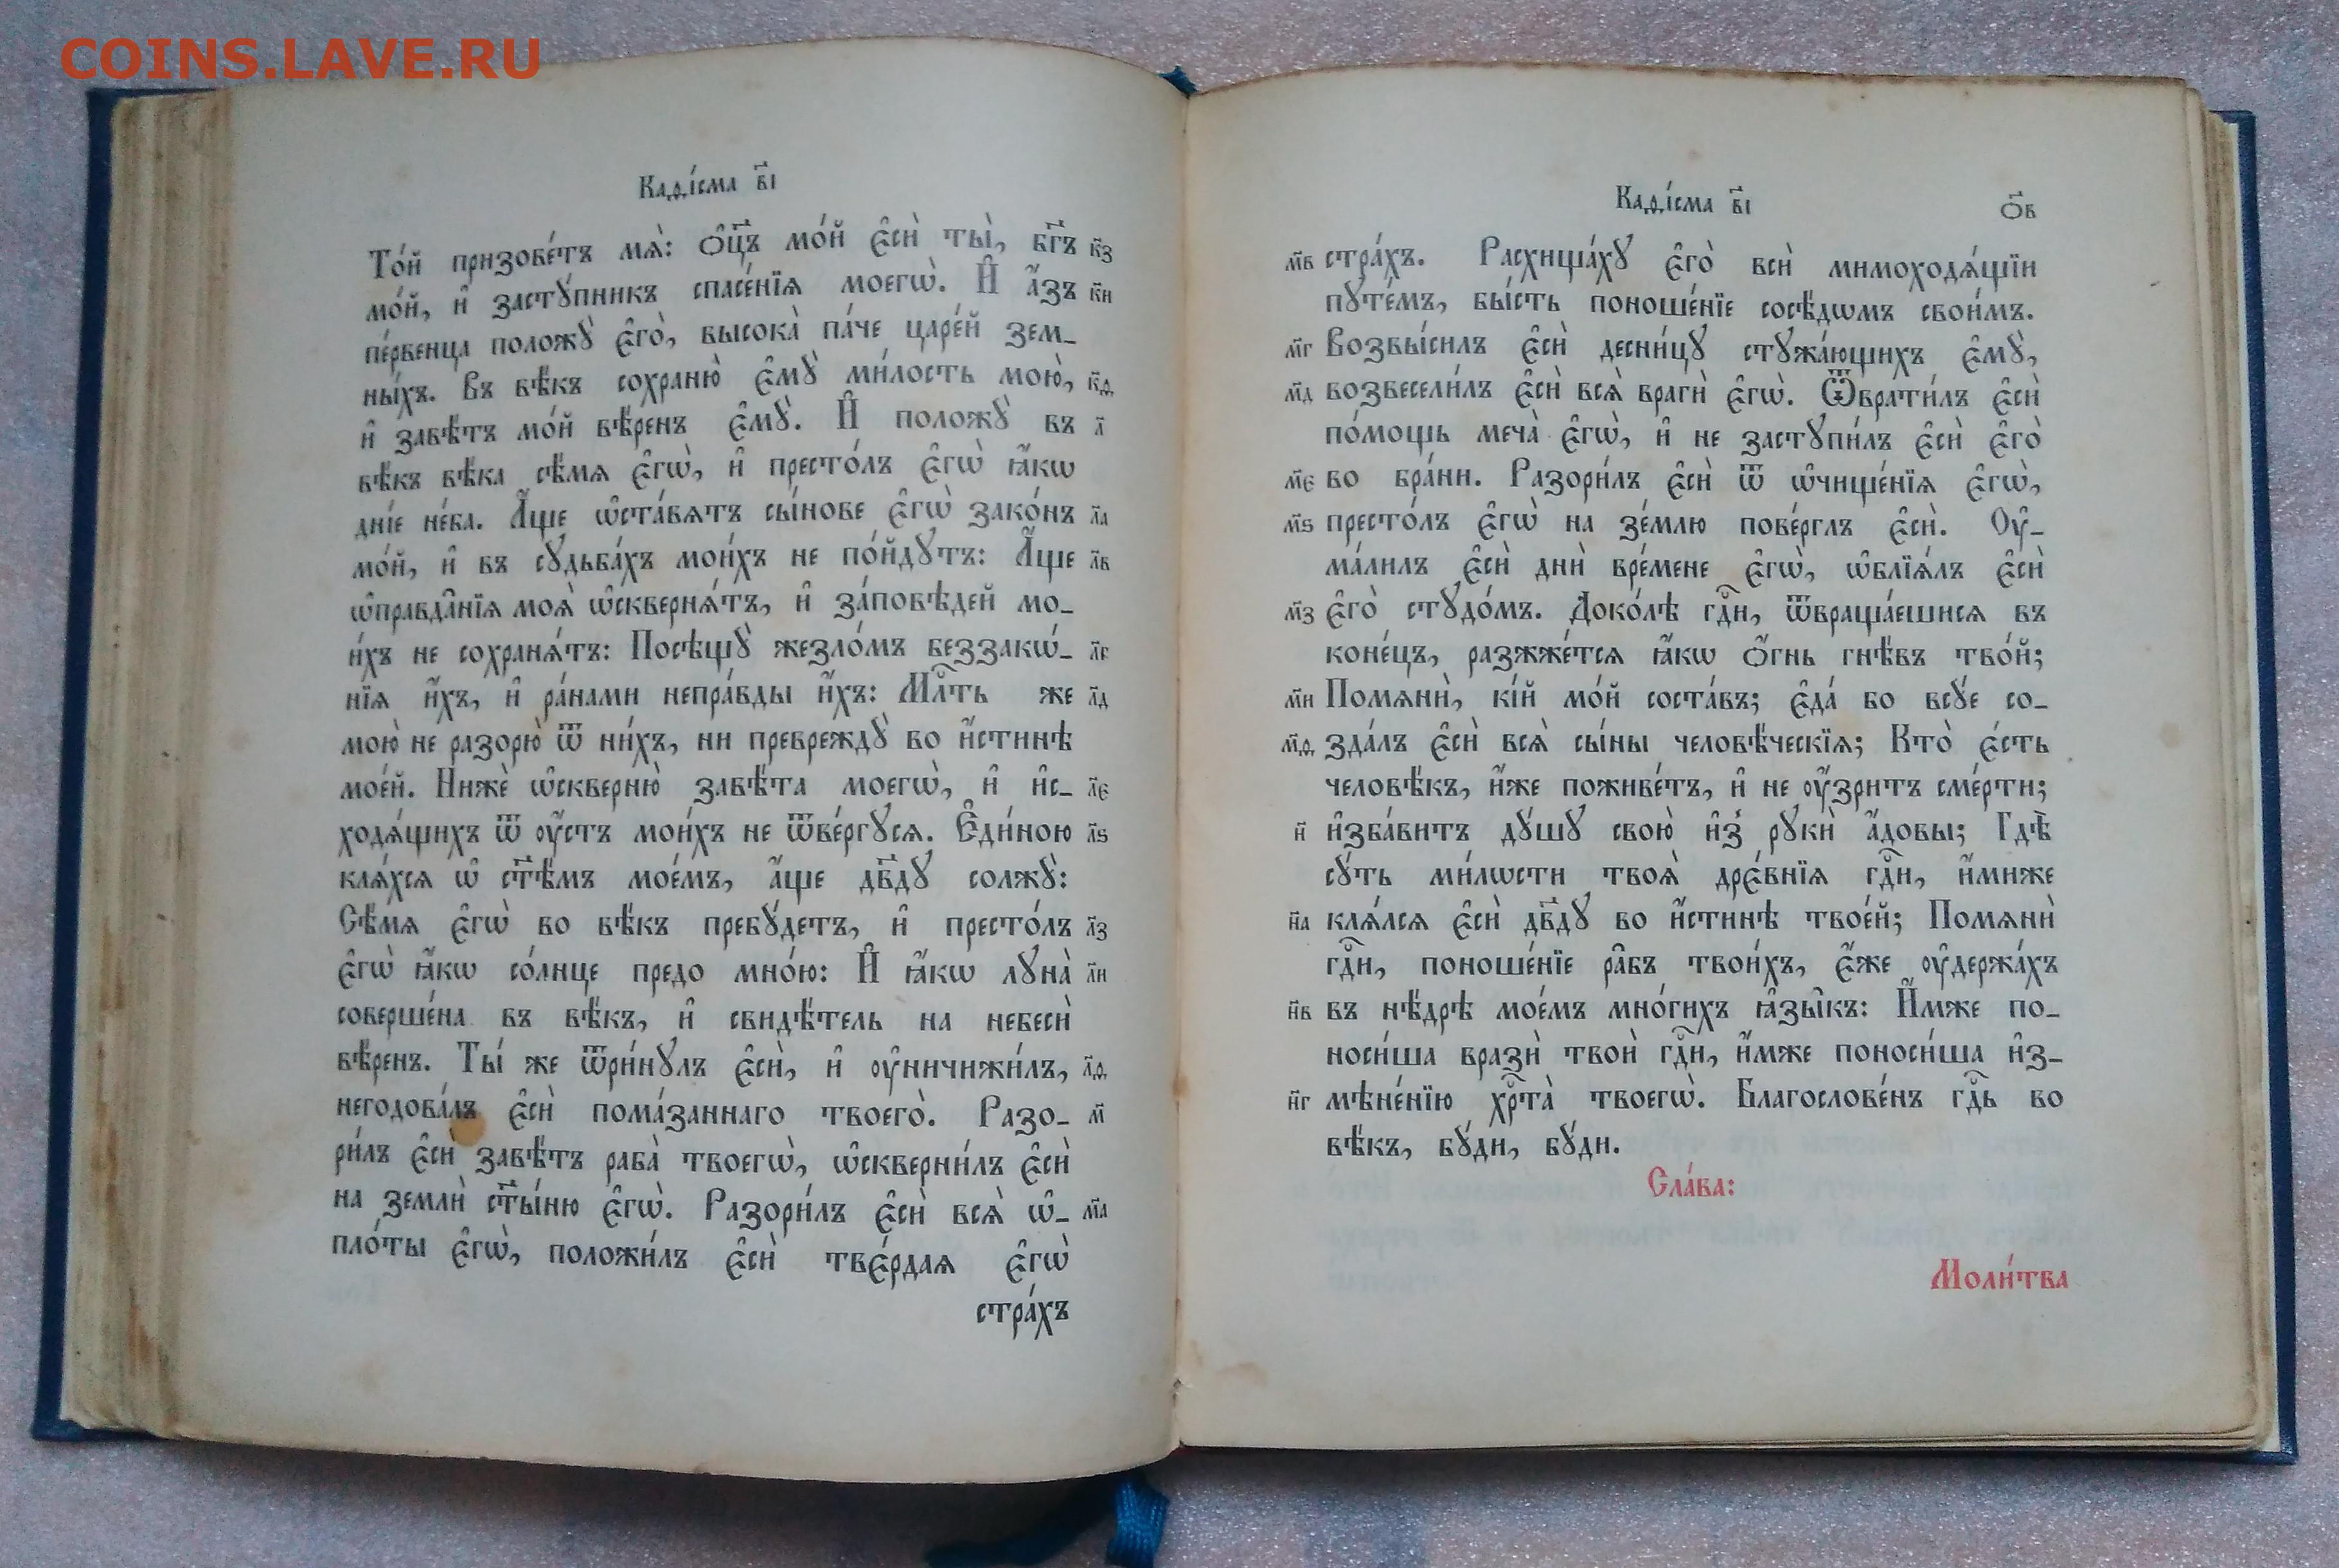 COINS.LAVE.RU
Каѳі́сма в҃і
То́й призове́тъ мѧ̀: ѻ҆ц҃ъ мо́й є҆сѝ ты̀, бг҃ъ к҃з
мо́й, и҆ застꙋ́пникъ спасе́нїѧ моегѡ̀. И҆ а҆́зъ к҃и
пе́рвенца положꙋ̀ є҆го̀, высока̀ па́че царе́й зем_
ны́хъ. Въ вѣ́къ сохраню̀ є҆мꙋ̀ ми́лость мою̀, к҃ѳ
и҆ завѣ́тъ мо́й вѣ́ренъ є҆мꙋ̀. И҆ положꙋ̀ въ л҃
вѣ́къ вѣ́ка сѣ́мѧ є҆гѡ̀, и҆ престо́лъ є҆гѡ̀ ꙗ҆́кѡ
дні́е не́ба. А҆́ще ѡ҆ста́вѧтъ сы́нове є҆гѡ̀ зако́нъ л҃а
мо́й, и҆ въ сꙋдьба́хъ мои́хъ не по́йдꙋтъ: А҆́ще л҃в
ѡ҆правда̑нїѧ моѧ̀ ѡ҆сквернѧ́тъ, и҆ за́повѣдей мо_
и́хъ не сохранѧ́тъ: Посѣщꙋ̀ жезло́мъ беззакѡ́_ л҃г
нїѧ и҆́хъ, и҆ ра́нами непра́вды и҆́хъ: Млⷭ҇ть же л҃д
мою̀ не разорю̀ ѿ ни́хъ, ни превреждꙋ̀ во и҆́стинѣ
мое́й. Нижѐ ѡ҆скверню̀ завѣ́та моегѡ̀, и҆ и҆с_ л҃є
ходѧ́щихъ ѿ оу҆́стъ мои́хъ не ѿве́ргꙋсѧ. Є҆ди́ною л҃ѕ
клѧ́хсѧ ѡ҆ ст҃ѣ́мъ мое́мъ, а҆́ще дв҃дꙋ солжꙋ̀:
Сѣ́мѧ є҆гѡ̀ во вѣ́къ пребꙋ́детъ, и҆ престо́лъ л҃з
є҆гѡ̀ ꙗ҆́кѡ со́лнце предо мно́ю: И҆ ꙗ҆́кѡ лꙋна̀ л҃и
соверше́на въ вѣ́къ, и҆ свидѣ́тель на небесѝ
вѣ́ренъ. Ты́ же ѿри́нꙋлъ є҆сѝ, и҆ оу҆ничижи́лъ, л҃ѳ
негодова́лъ є҆сѝ пома́заннаго твоего̀. Разо_ м҃
ри́лъ є҆сѝ завѣ́тъ раба̀ твоегѡ̀, ѡ҆скверни́лъ є҆сѝ
на землѝ ст҃ы́ню є҆гѡ̀. Разори́лъ є҆сѝ всѧ̑ ѡ҆_ м҃а
пло́ты є҆гѡ̀, положи́лъ є҆сѝ твє́рдаѧ є҆гѡ̀
стра́хъ
Каѳі́сма в҃і ѻ҃в
м҃в стра́хъ. Расхища́хꙋ є҆го̀ всѝ мимоходѧ́щїи
пꙋте́мъ, бы́сть поноше́нїе сосѣ́дѡмъ свои̑мъ.
м҃г Возвы́силъ є҆сѝ десни́цꙋ стꙋжа́ющихъ є҆мꙋ̀,
м҃д возвесели́лъ є҆сѝ всѧ̑ врагѝ є҆гѡ̀. Ѿврати́лъ є҆сѝ
по́мощь меча̀ є҆гѡ̀, и҆ не застꙋпи́лъ є҆сѝ є҆го̀
м҃є во бра́ни. Разори́лъ є҆сѝ ѿ ѡ҆чище́нїѧ є҆гѡ̀,
м҃ѕ престо́лъ є҆гѡ̀ на зе́млю пове́рглъ є҆сѝ. Оу҆_
ма́лилъ є҆сѝ днѝ вре́мене є҆гѡ̀, ѡ҆блїѧ́лъ є҆сѝ
м҃з є҆го̀ стꙋдо́мъ. Доко́лѣ гдⷭ҇и, ѿвраща́ешисѧ въ
коне́цъ, разжже́тсѧ ꙗ҆́кѡ ѻ҆́гнь гнѣ́въ тво́й;
м҃и Помѧнѝ, кі́й мо́й соста́въ; є҆да́ бо всꙋ́е со_
м҃ѳ зда́лъ є҆сѝ всѧ̑ сы́ны человѣ́ческїѧ; Кто̀ є҆́сть
человѣ́къ, и҆́же поживе́тъ, и҆ не оу҆́зритъ сме́рти;
н҃ и҆зба́витъ дꙋ́шꙋ свою̀ и҆з̾ рꙋкѝ а҆́довы; Гдѣ̀
сꙋ́ть ми́лѡсти твоѧ̑ дрє́внїѧ гдⷭ҇и, и҆́миже
н҃а клѧ́лсѧ є҆сѝ дв҃дꙋ во и҆́стинѣ твое́й; Помѧнѝ
гдⷭ҇и, поноше́нїе ра̑бъ твои́хъ, є҆́же оу҆держа́хъ
н҃в въ нѣ́дрѣ мое́мъ мно́гихъ ꙗ҆зы̑къ: И҆́мже по_
носи́ша вразѝ твоѝ гдⷭ҇и, и҆́мже поноси́ша и҆з_
н҃г мѣне́нїю хрⷭ҇та̀ твоегѡ̀. Благослове́нъ гдⷭ҇ь во
вѣ́къ, бꙋ́ди, бꙋ́ди.
Сла́ва:
Моли́тва